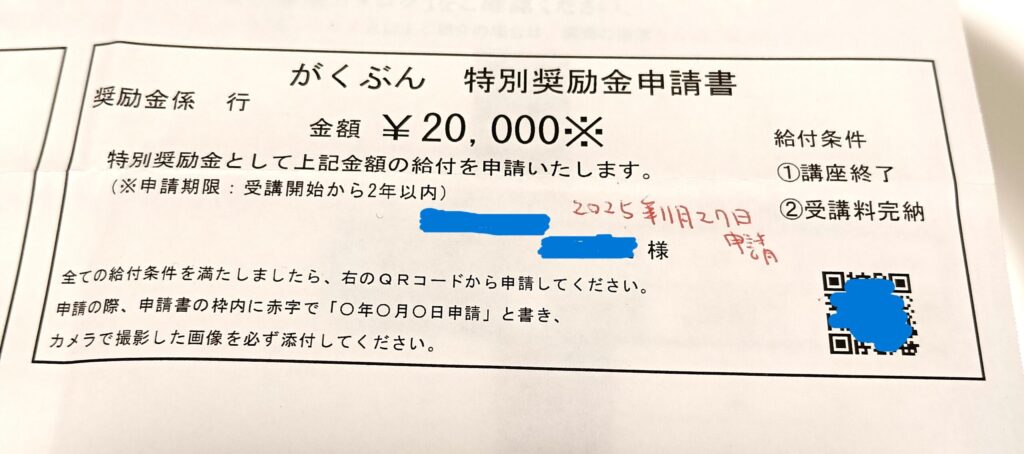 がくぶん 特別奨励金申請書
奨励金係 行
金額 ￥20,000※
特別奨励金として上記金額の給付を申請いたします。
(※申請期限：受講開始から2年以内)
2025年11月27日
申請
様
給付条件
①講座終了
②受講料完納
全ての給付条件を満たしましたら、右のQRコードから申請してください。
申請の際、申請書の枠内に赤字で「〇年〇月〇日申請」と書き、
カメラで撮影した画像を必ず添付してください。